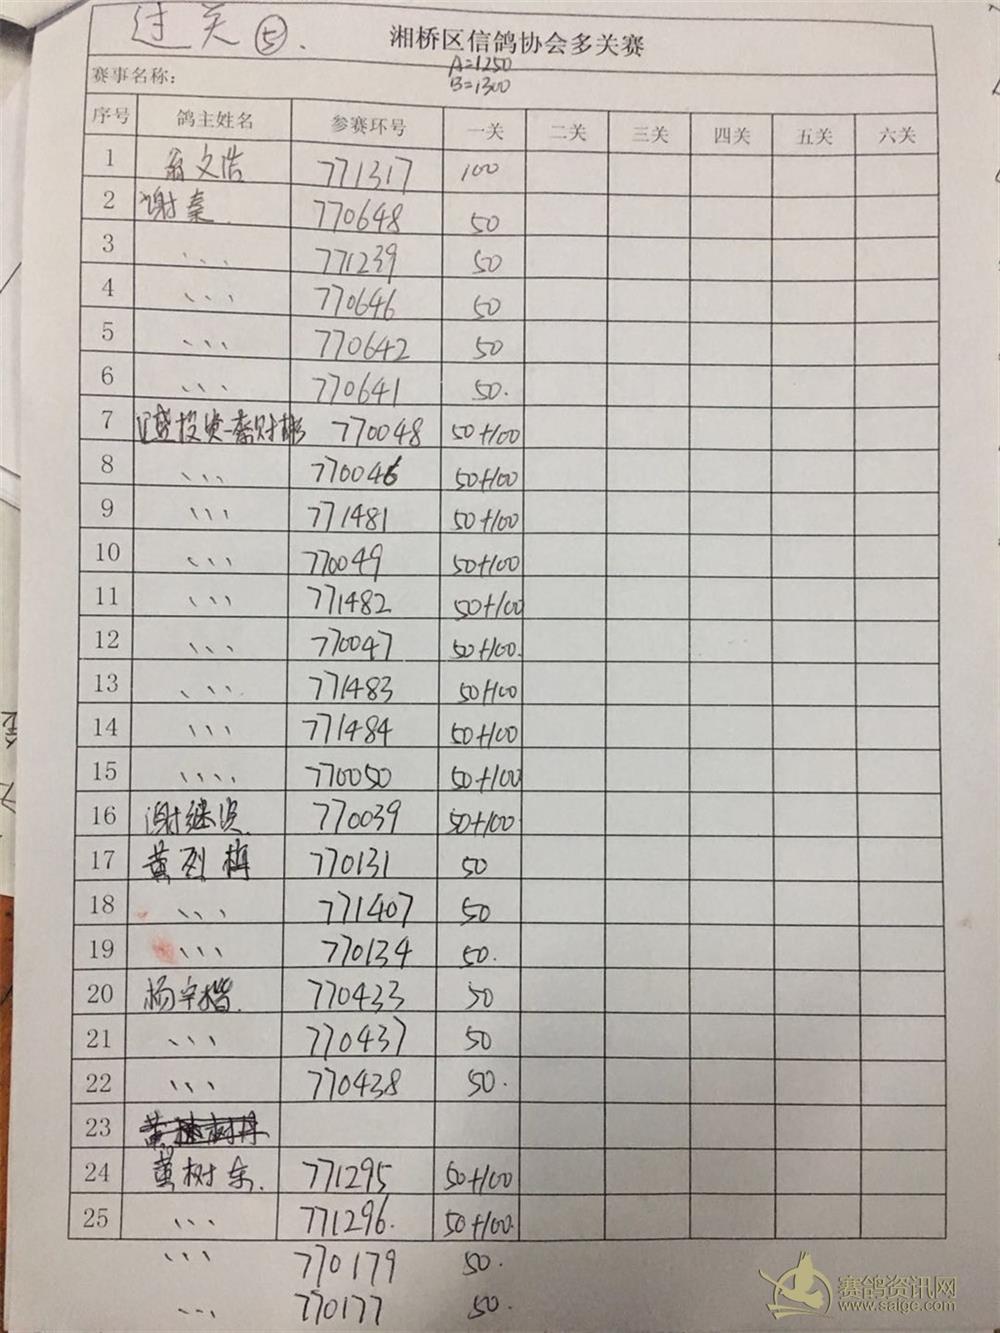 过关⑤.
湘桥区信鸽协会多关赛
A=1250
赛事名称:
B=1300
序号 鸽主姓名 参赛环号 一关 二关 三关 四关 五关 六关
1 翁文浩 771317 100
2 谢秦 770648 50
3 、、、 771239 50
4 、、、 770646 50
5 、、、 770642 50
6 、、、 770641 50.
7 投资-秦财彬 770048 50+100
8 、、、 770046 50+100
9 、、、 771481 50+100
10 、、、 770049 50+100
11 、、、 771482 50+100
12 、、、 770047 50+100.
13 、、、 771483 50+100
14 、、、 771484 50+100
15 、、、、 770050 50+100
16 谢继 770039 50+100
17 黄烈 770131 50
18 、、、 771407 50
19 、、、 770134 50.
20 杨宇 770433 50
21 、、、 770437 50
22 、、、 770438 50.
23
24 黄树东. 771295 50+100
25 、、、 771296. 50+100.
、、、 770179 50.
、、、 770177 50.
赛鸽资讯网
www.saige.com